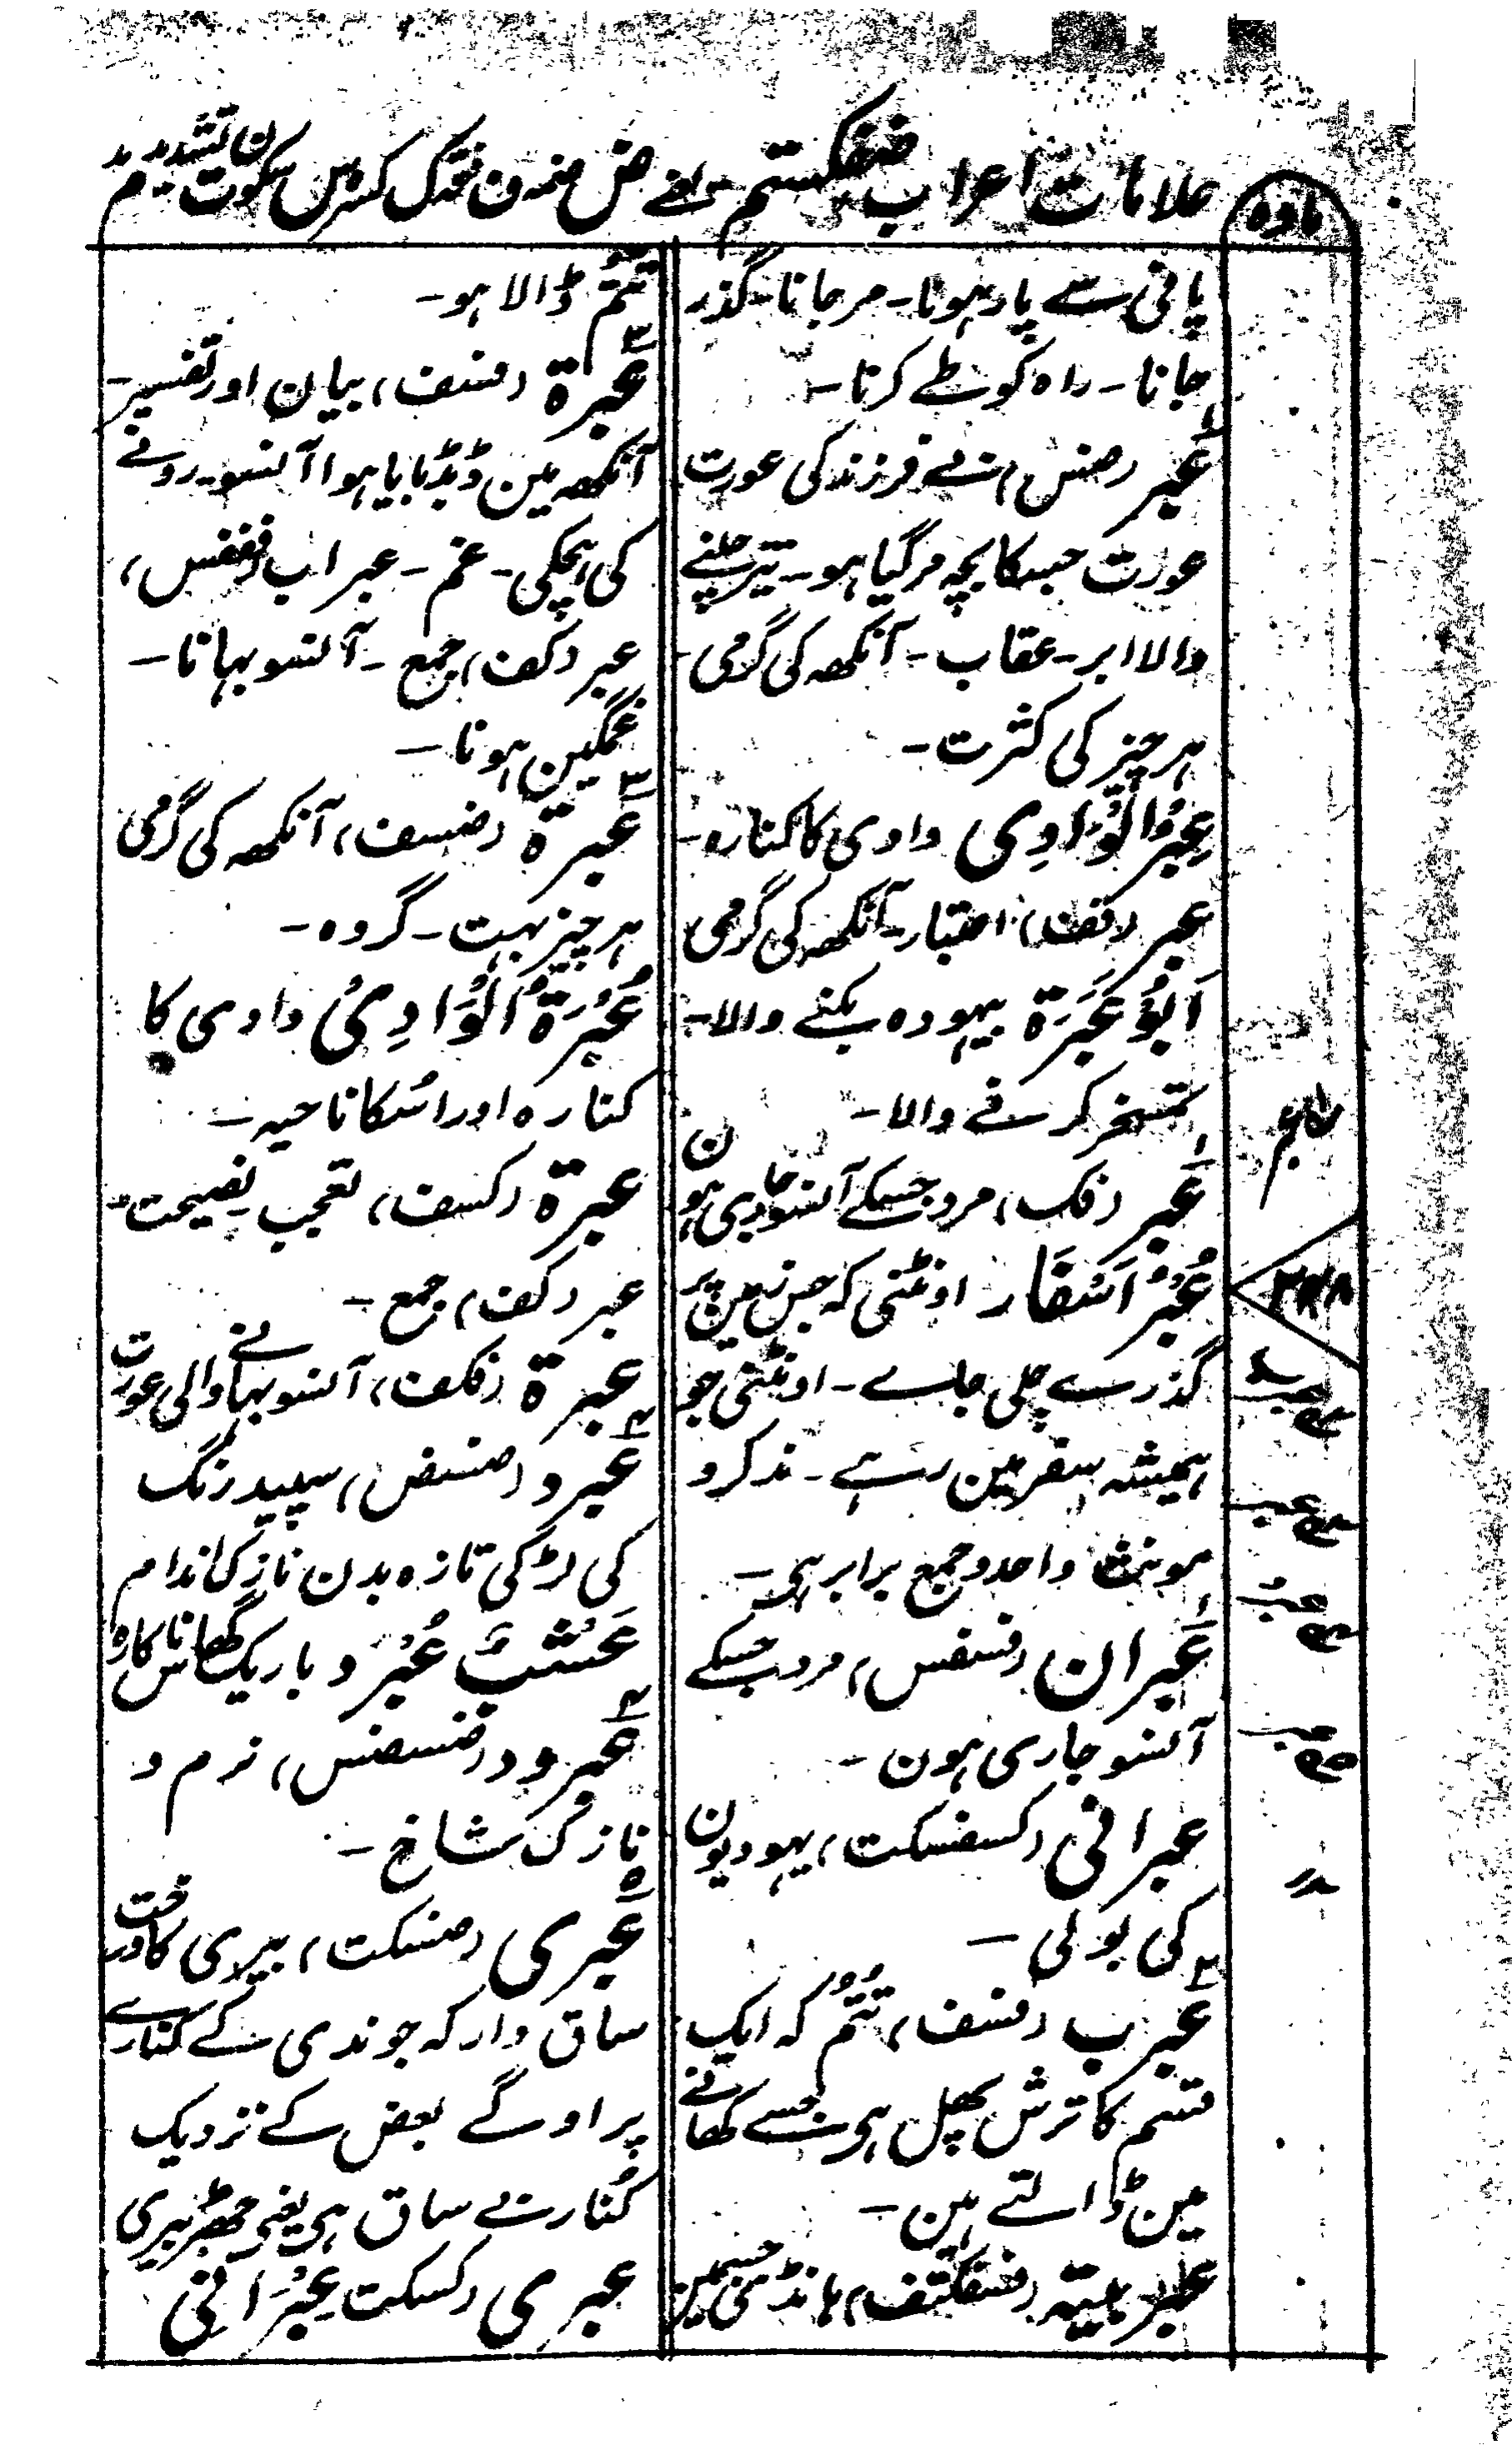 علامات اعراب ضفکستم یعنے ض ضمہ ف فتحہ ک کسرہ س سکون ت تشدید م مد
مادہ
پانی سے پار ہونا۔ مر جانا۔ گذر
جانا۔ راہ کو طے کرنا۔
عبر (ضس) بے فرزند کی عورت
عورت جسکا بچہ مر گیا ہو۔ تیز چلنے
والا ابر۔ عقاب۔ آنکھہ کی گرمی۔
ہر چیز کی کثرت۔
عِبْرُ الْوَادِی وادی کا کنارہ۔
عبر (فف) اعتبار۔ آنکھہ کی گرمی
اَبُوْ عَبَرَة بیہودہ بکنے والا۔
تمسخر کرنے والا۔
عبر (فک) مرد جسکے آنسو جاری ہون
عُبْرُ اَسْفَار اونٹنی کہ جس زمین پر
گذرے چلی جاے۔ اونٹنی جو
ہمیشہ سفر مین رہے۔ مذکر و
مونث واحد و جمع برابر ہی۔
عبران (فسفس) مرد جسکے
آنسو جاری ہون۔
عبرانی (کسفسکت) یہودیون
کی بولی۔
عبرب (فسف) تُتُم کہ ایک
قسم کا ترش پھل ہی جسے کھانے
مین ڈالتے ہین۔
عبربیتہ (فسفکتف) ہانڈی جسمین
تُتُم ڈالا ہو۔
عبرة (فسف) بیان اور تفسیر۔
آنکھہ مین ڈبڈبایا ہوا آنسو۔ رونے
کی ہچکی۔ غم۔ عبراب (ففس)
عبر (کف) جمع۔ آنسو بہانا۔
غمگین ہونا۔
عبرة (ضسف) آنکھہ کی گرمی
ہر چیز بہت۔ گروہ۔
عُبْرَةُ الْوَادِیْ وادی کا
کنارہ اور اسکا ناحیہ۔
عبرة (کسف) تعجب۔ نصیحت۔
عبر (کف) جمع۔
عبرة (فکف) آنسو بہانے والی عورت
عبرد (ضسض) سپید رنگ
کی لڑکی تازہ بدن نازک اندام
عُشْبٌ عُبْرُد باریک گھانس ناکارہ
عبرود (ضسضس) نرم و
نازک شاخ۔
عبری (ضسکت) بیری کا درخت
ساق دار کہ جو ندی کے کنارے
پر اوگے بعض کے نزدیک
کُنار بے ساق ہی یعنی جھڑبیری
عبری (کسکت) عِبْرَانِی